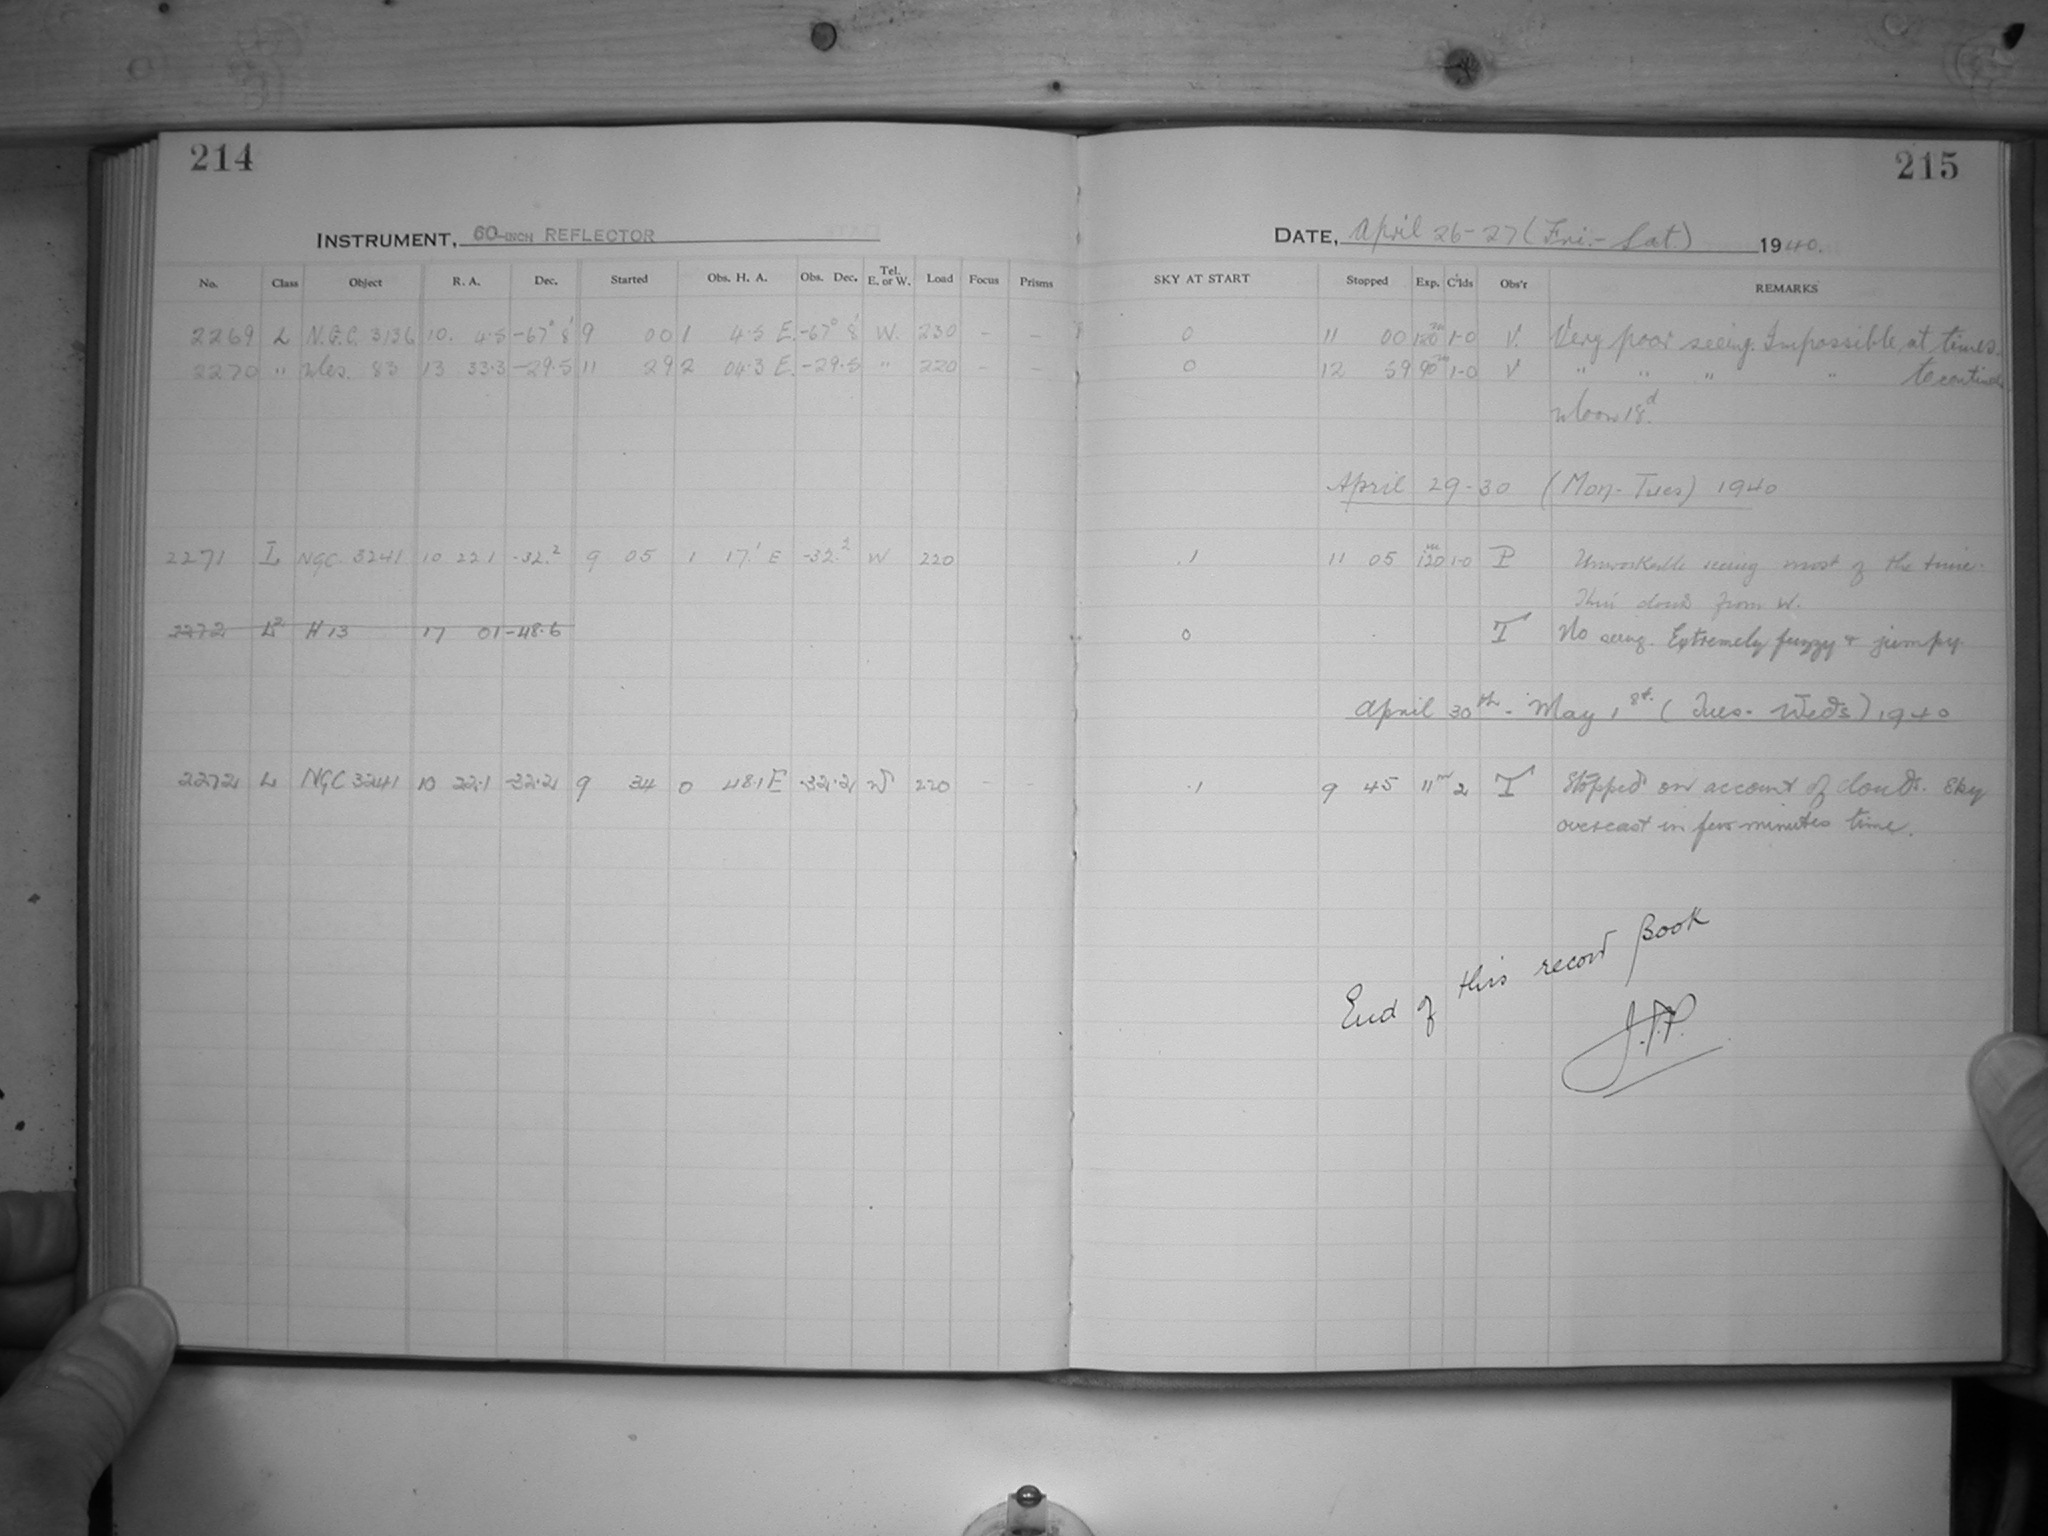 214
INSTRUMENT, 60-INCH REFLECTOR
No. Class Object R. A. Dec. Started Obs. H. A. Obs. Dec. Tel. E. or W. Load Focus Prisms
2269 L N.G.C. 3136 10. 4.5 -67° 8' 9 00 1 4.5 E. -67° 8' W. 230 - -
2270 " Mes. 83 13 33.3 -29.5 11 29 2 04.3 E. -29.5 " 220 - -
2271 L NGC. 3241 10 22.1 -32.2 9 05 1 17.1 E -32.2 W 220
2272 L2 H 13 17 01 -48.6
2272 L NGC 3241 10 22.1 -32.2 9 34 0 48.1 E -32.2 W 220 - -
215
DATE, April 26-27 (Fri.-Sat.) 1940.
SKY AT START Stopped Exp. C'lds Obs'r REMARKS
0 11 00 120m 1-0 V. Very poor seeing. Impossible at times
0 12 59 90m 1-0 V " " " " to continue
Moon 18d.
April 29-30 (Mon-Tues) 1940
.1 11 05 120m 1-0 P Unworkable seeing most of the time.
Thin cloud from W.
0 T No seeing. Extremely fuzzy & jumpy
April 30th - May 1st. (Tues- Weds) 1940
.1 9 45 11m 2 T Stopped on account of clouds. Sky
overcast in few minutes time.
End of this record Book
J.S.P.